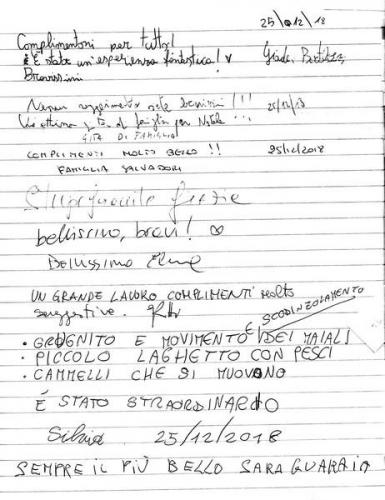 25/12/18
Complimentoni per tutto!
È stata un'esperienza fantastica!
Bravissimi
Nessun suggerimento siete bravissimi!!! 25/12/18
gita di famiglia per Natale
GITA DI FAMIGLIA
COMPLIMENTI MOLTO BELLO !! 25/12/2018
FAMIGLIA SALVADORI
Stupefacente grazie
bellissimo, bravi! ♡
Bellissimo
UN GRANDE LAVORO COMPLIMENTI molto
suggestivo.
E SCODINZOLAMENTO
• GRUGNITO E MOVIMENTO DEI MAIALI
• PICCOLO LAGHETTO CON PESCI
• CAMMELLI CHE SI MUOVONO
É STATO STRAORDINARIO
Silvia 25/12/2018
SEMPRE IL PIÙ BELLO SARA GUARAIA